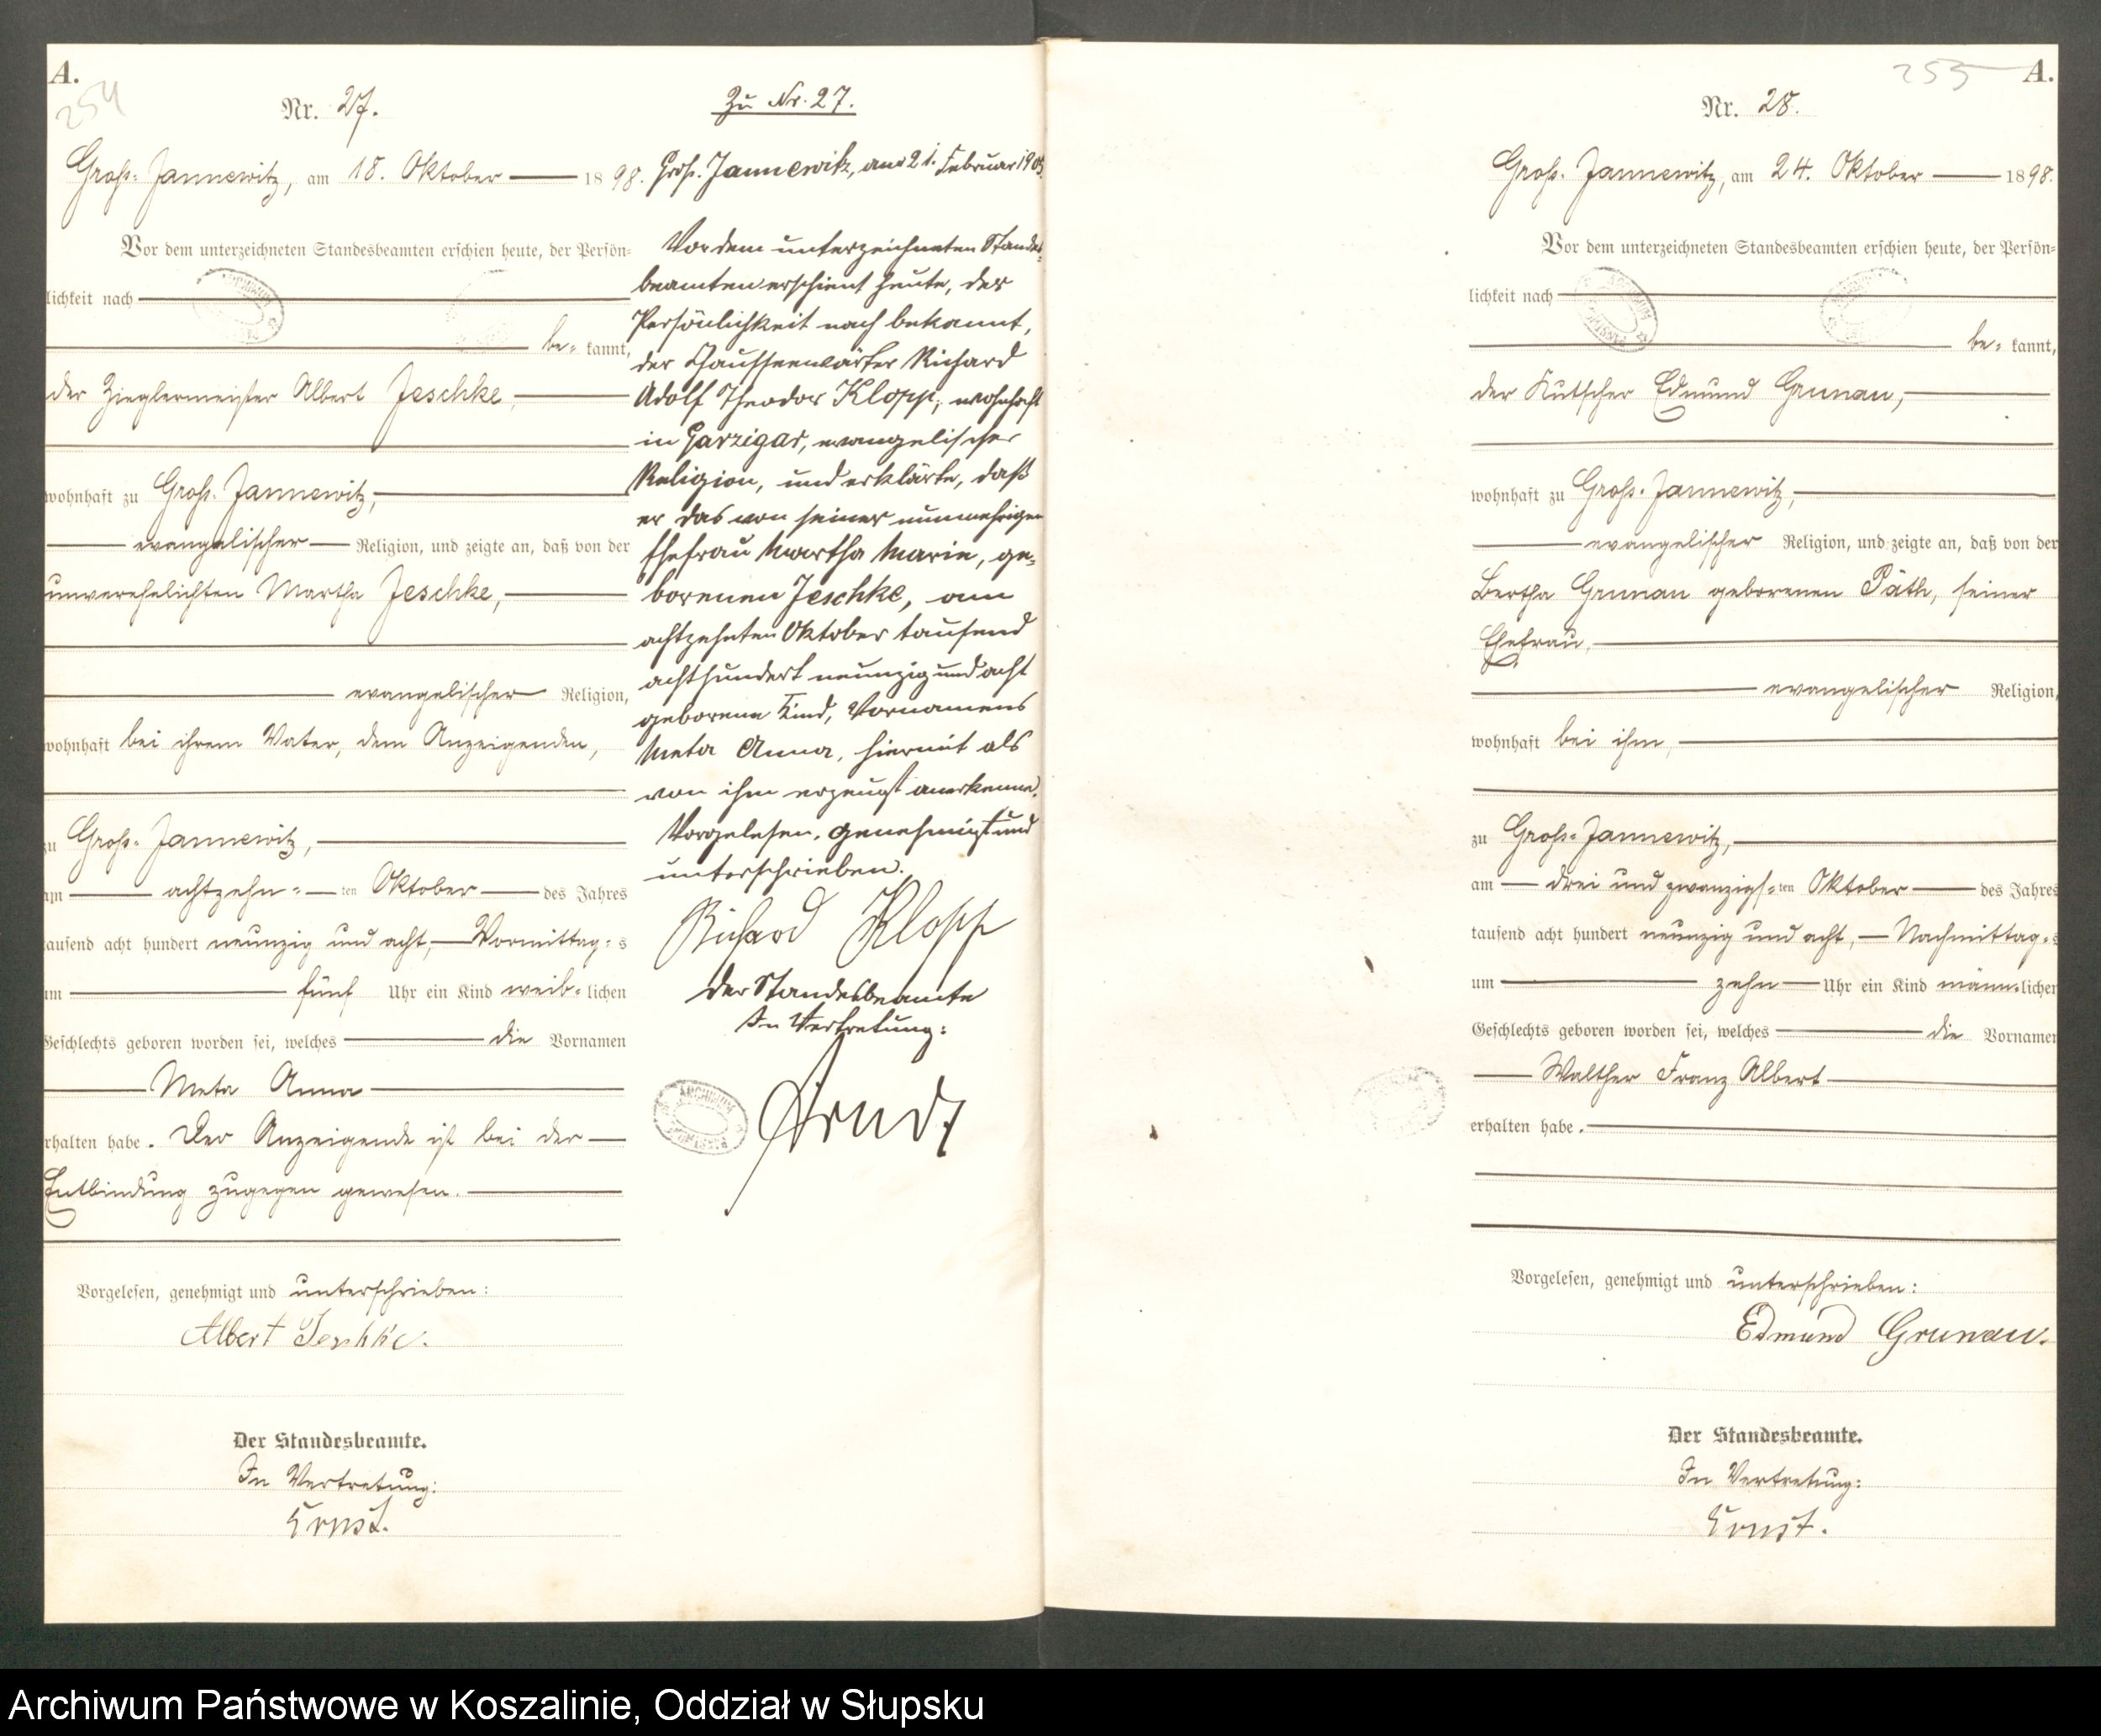 A.
254
Nr. 27.
Groß-Jannewitz, am 18. Oktober 1898.
Vor dem unterzeichneten Standesbeamten erschien heute, der Persön-
lichkeit nach
be- kannt,
der Zieglermeister Albert Jeschke,
wohnhaft zu Groß-Jannewitz,
evangelischer Religion, und zeigte an, daß von der
unverehelichten Martha Jeschke,
evangelischer Religion,
wohnhaft bei ihrem Vater, dem Anzeigenden,
zu Groß-Jannewitz,
am achtzehn-ten Oktober des Jahres
tausend acht hundert neunzig und acht, Vormittag-s
um fünf Uhr ein Kind weib-lichen
Geschlechts geboren worden sei, welches die Vornamen
Meta Anna
erhalten habe. Der Anzeigende ist bei der
Entbindung zugegen gewesen.
Vorgelesen, genehmigt und unterschrieben:
Albert Jeschke.
Der Standesbeamte.
In Vertretung:
Ernst.
Zu Nr. 27.
Groß-Jannewitz, am 21. Februar 1903.
Vor dem unterzeichneten Standes-
beamten erschient heute, der
Persönlichkeit nach bekannt,
der Chausseewärter Richard
Adolf Theodor Klopp, wohnhaft
in Garzigar, evangelischer
Religion, und erklärte, daß
er das von seiner nunmehrigen
Ehefrau Martha Marie, ge-
borenen Jeschke, am
achtzehnten Oktober tausend
achthundert neunzig und acht
geborene Kind, Vornamens
Meta Anna, hiermit als
von ihm erzeugt anerkenne.
Vorgelesen, genehmigt und
unterschrieben.
Richard Klopp
Der Standesbeamte
In Vertretung:
Arndt
255
A.
Nr. 28.
Groß-Jannewitz, am 24. Oktober 1898.
Vor dem unterzeichneten Standesbeamten erschien heute, der Persön-
lichkeit nach
be- kannt,
der Kutscher Edmund Grunau,
wohnhaft zu Groß-Jannewitz,
evangelischer Religion, und zeigte an, daß von der
Bertha Grunau geborenen Päth, seiner
Ehefrau,
evangelischer Religion,
wohnhaft bei ihm,
zu Groß-Jannewitz,
am drei und zwanzigs-ten Oktober des Jahres
tausend acht hundert neunzig und acht, Nachmittag-s
um zehn Uhr ein Kind männ-lichen
Geschlechts geboren worden sei, welches die Vornamen
Walther Franz Albert
erhalten habe.
Vorgelesen, genehmigt und unterschrieben:
Edmund Grunau.
Der Standesbeamte.
In Vertretung:
Ernst.
Archiwum Państwowe w Koszalinie, Oddział w Słupsku